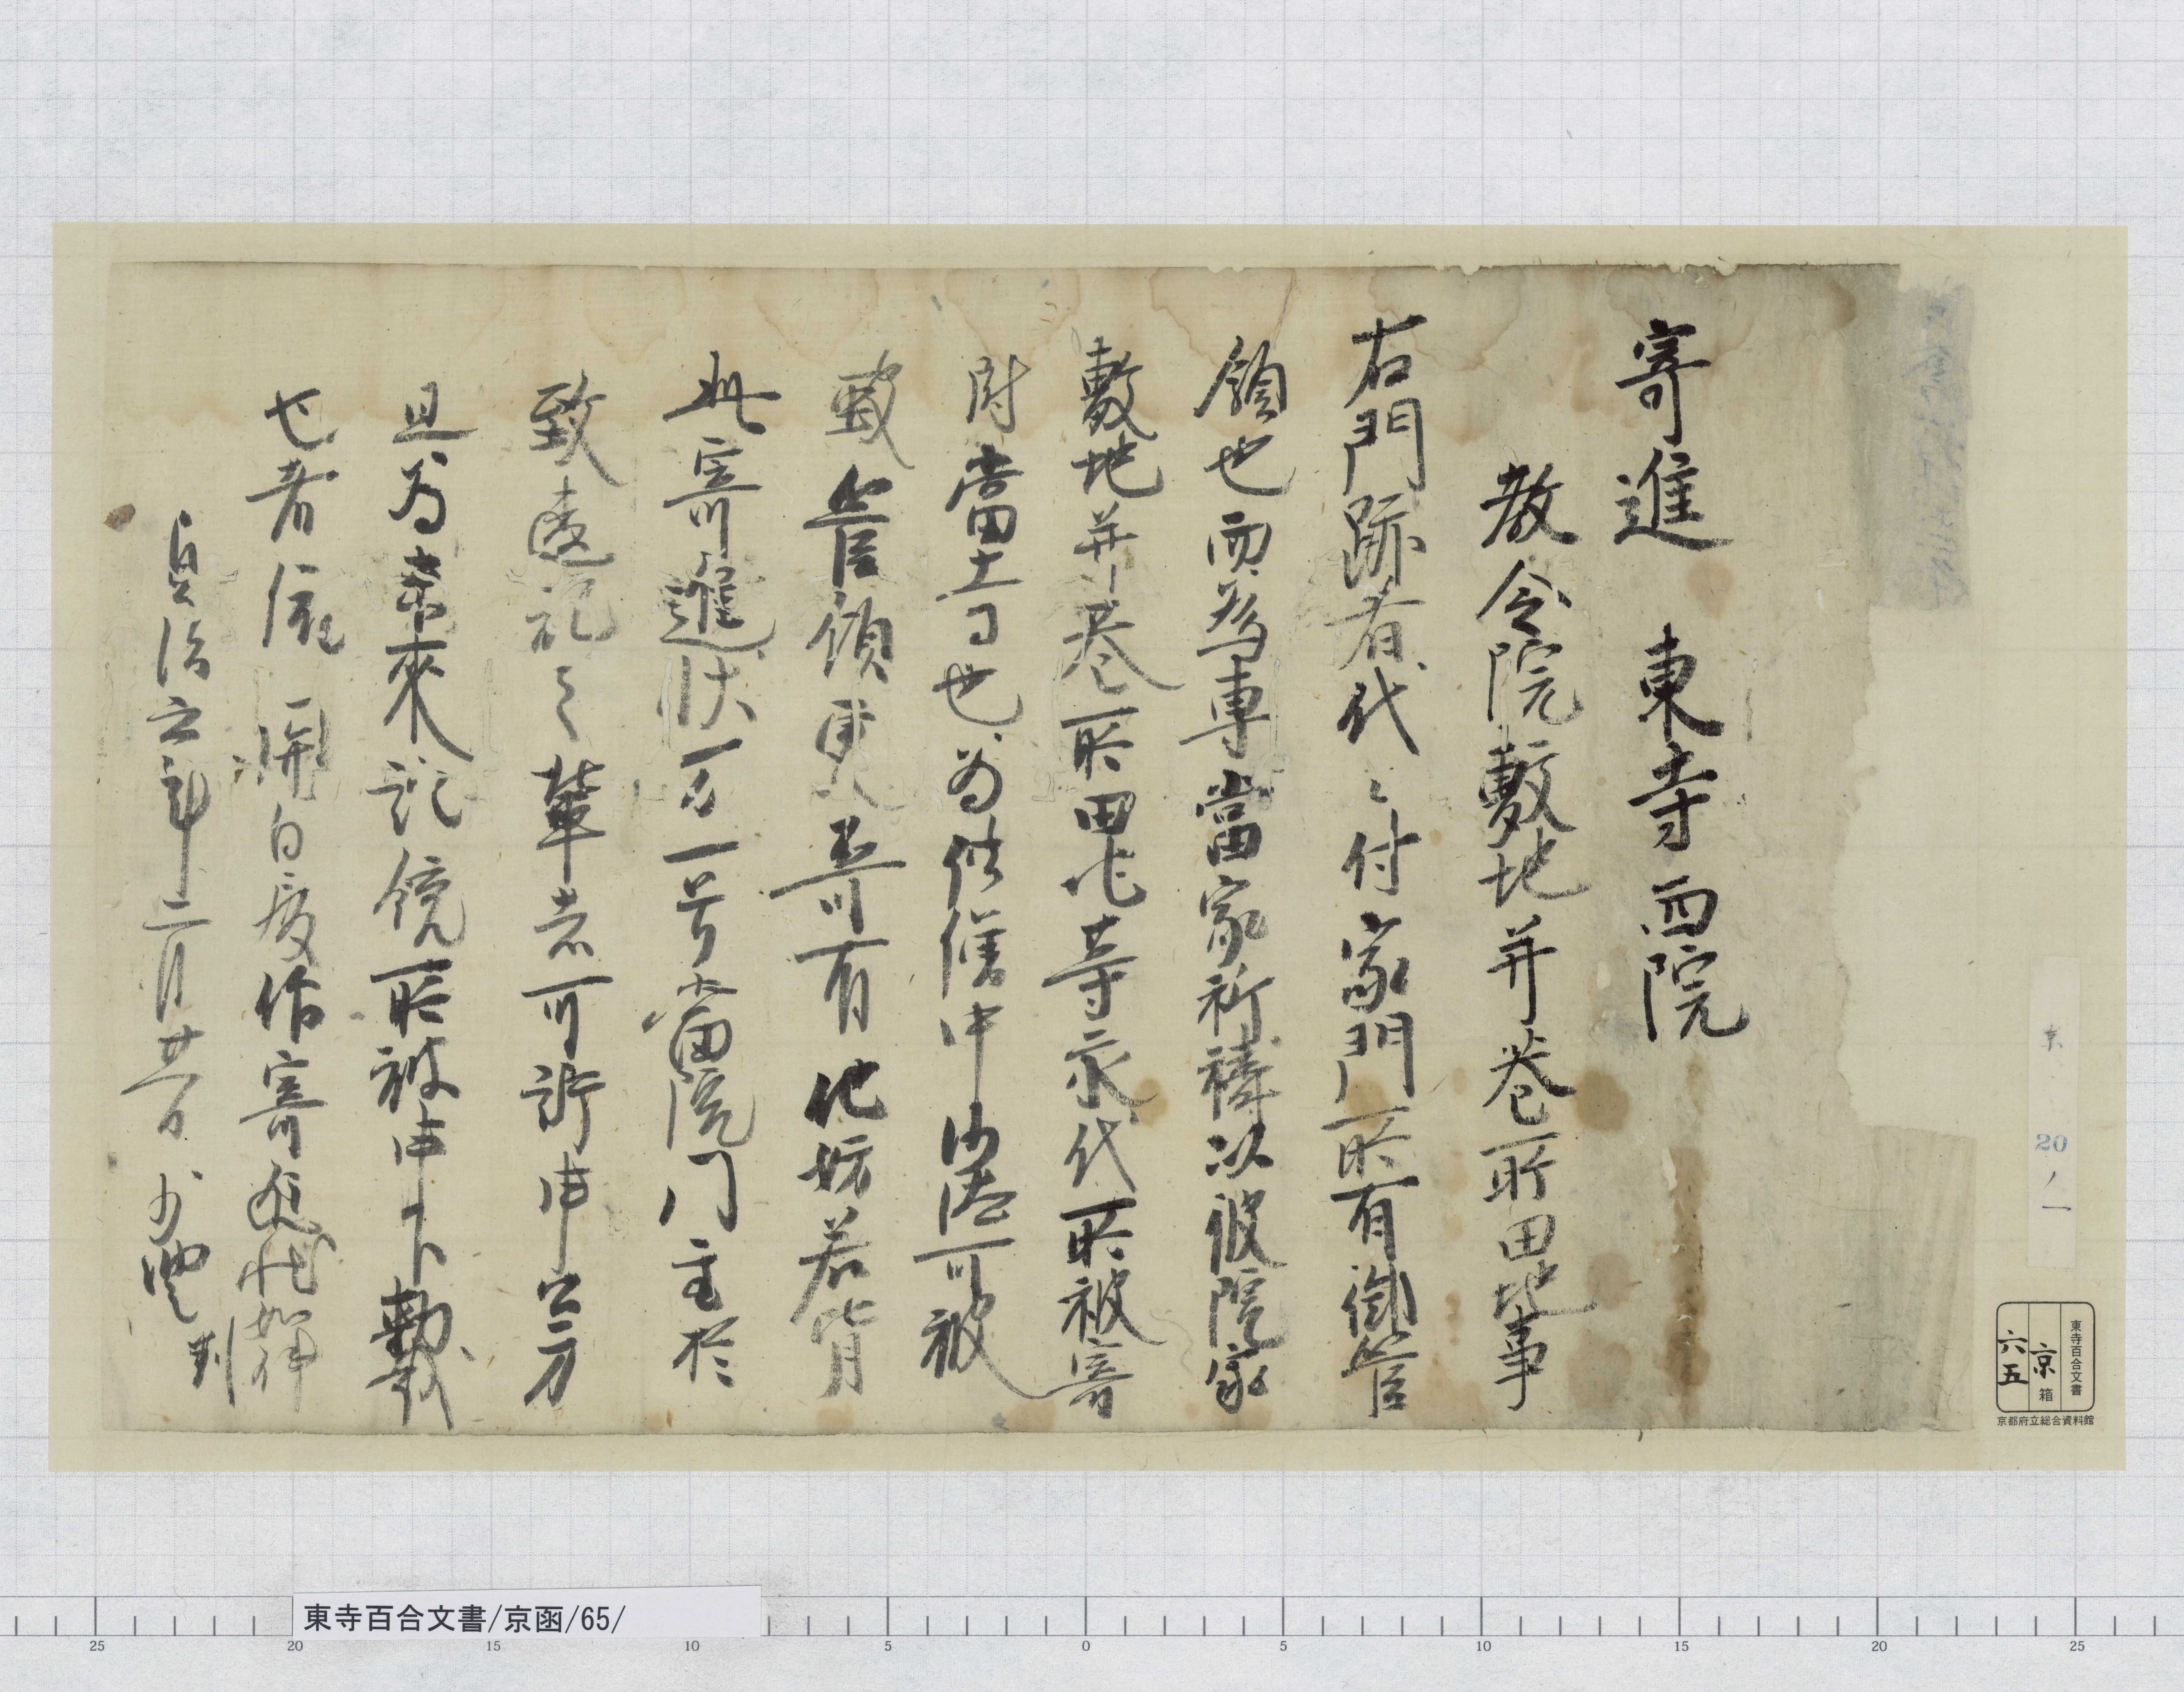 寄進　東寺西院
教令院敷地并巷所田地事
右門跡者代々付家門所有御管
領也而為専當家祈祷以彼院家
敷地并巷所田地等永代所被寄
附當寺也為供僧中沙汰可被
致管領更不可有他妨若背
此寄進状万一号當院門主於
致違乱之輩者可訴申公方
且為未来證鏡所被申下勅裁
也者依関白殿仰寄進状如件
貞治六年二月廿一日　判
京
20ノ一
東寺百合文書
京箱
六五
京都府立総合資料館
東寺百合文書/京函/65/
25 20 15 10 5 0 5 10 15 20 25